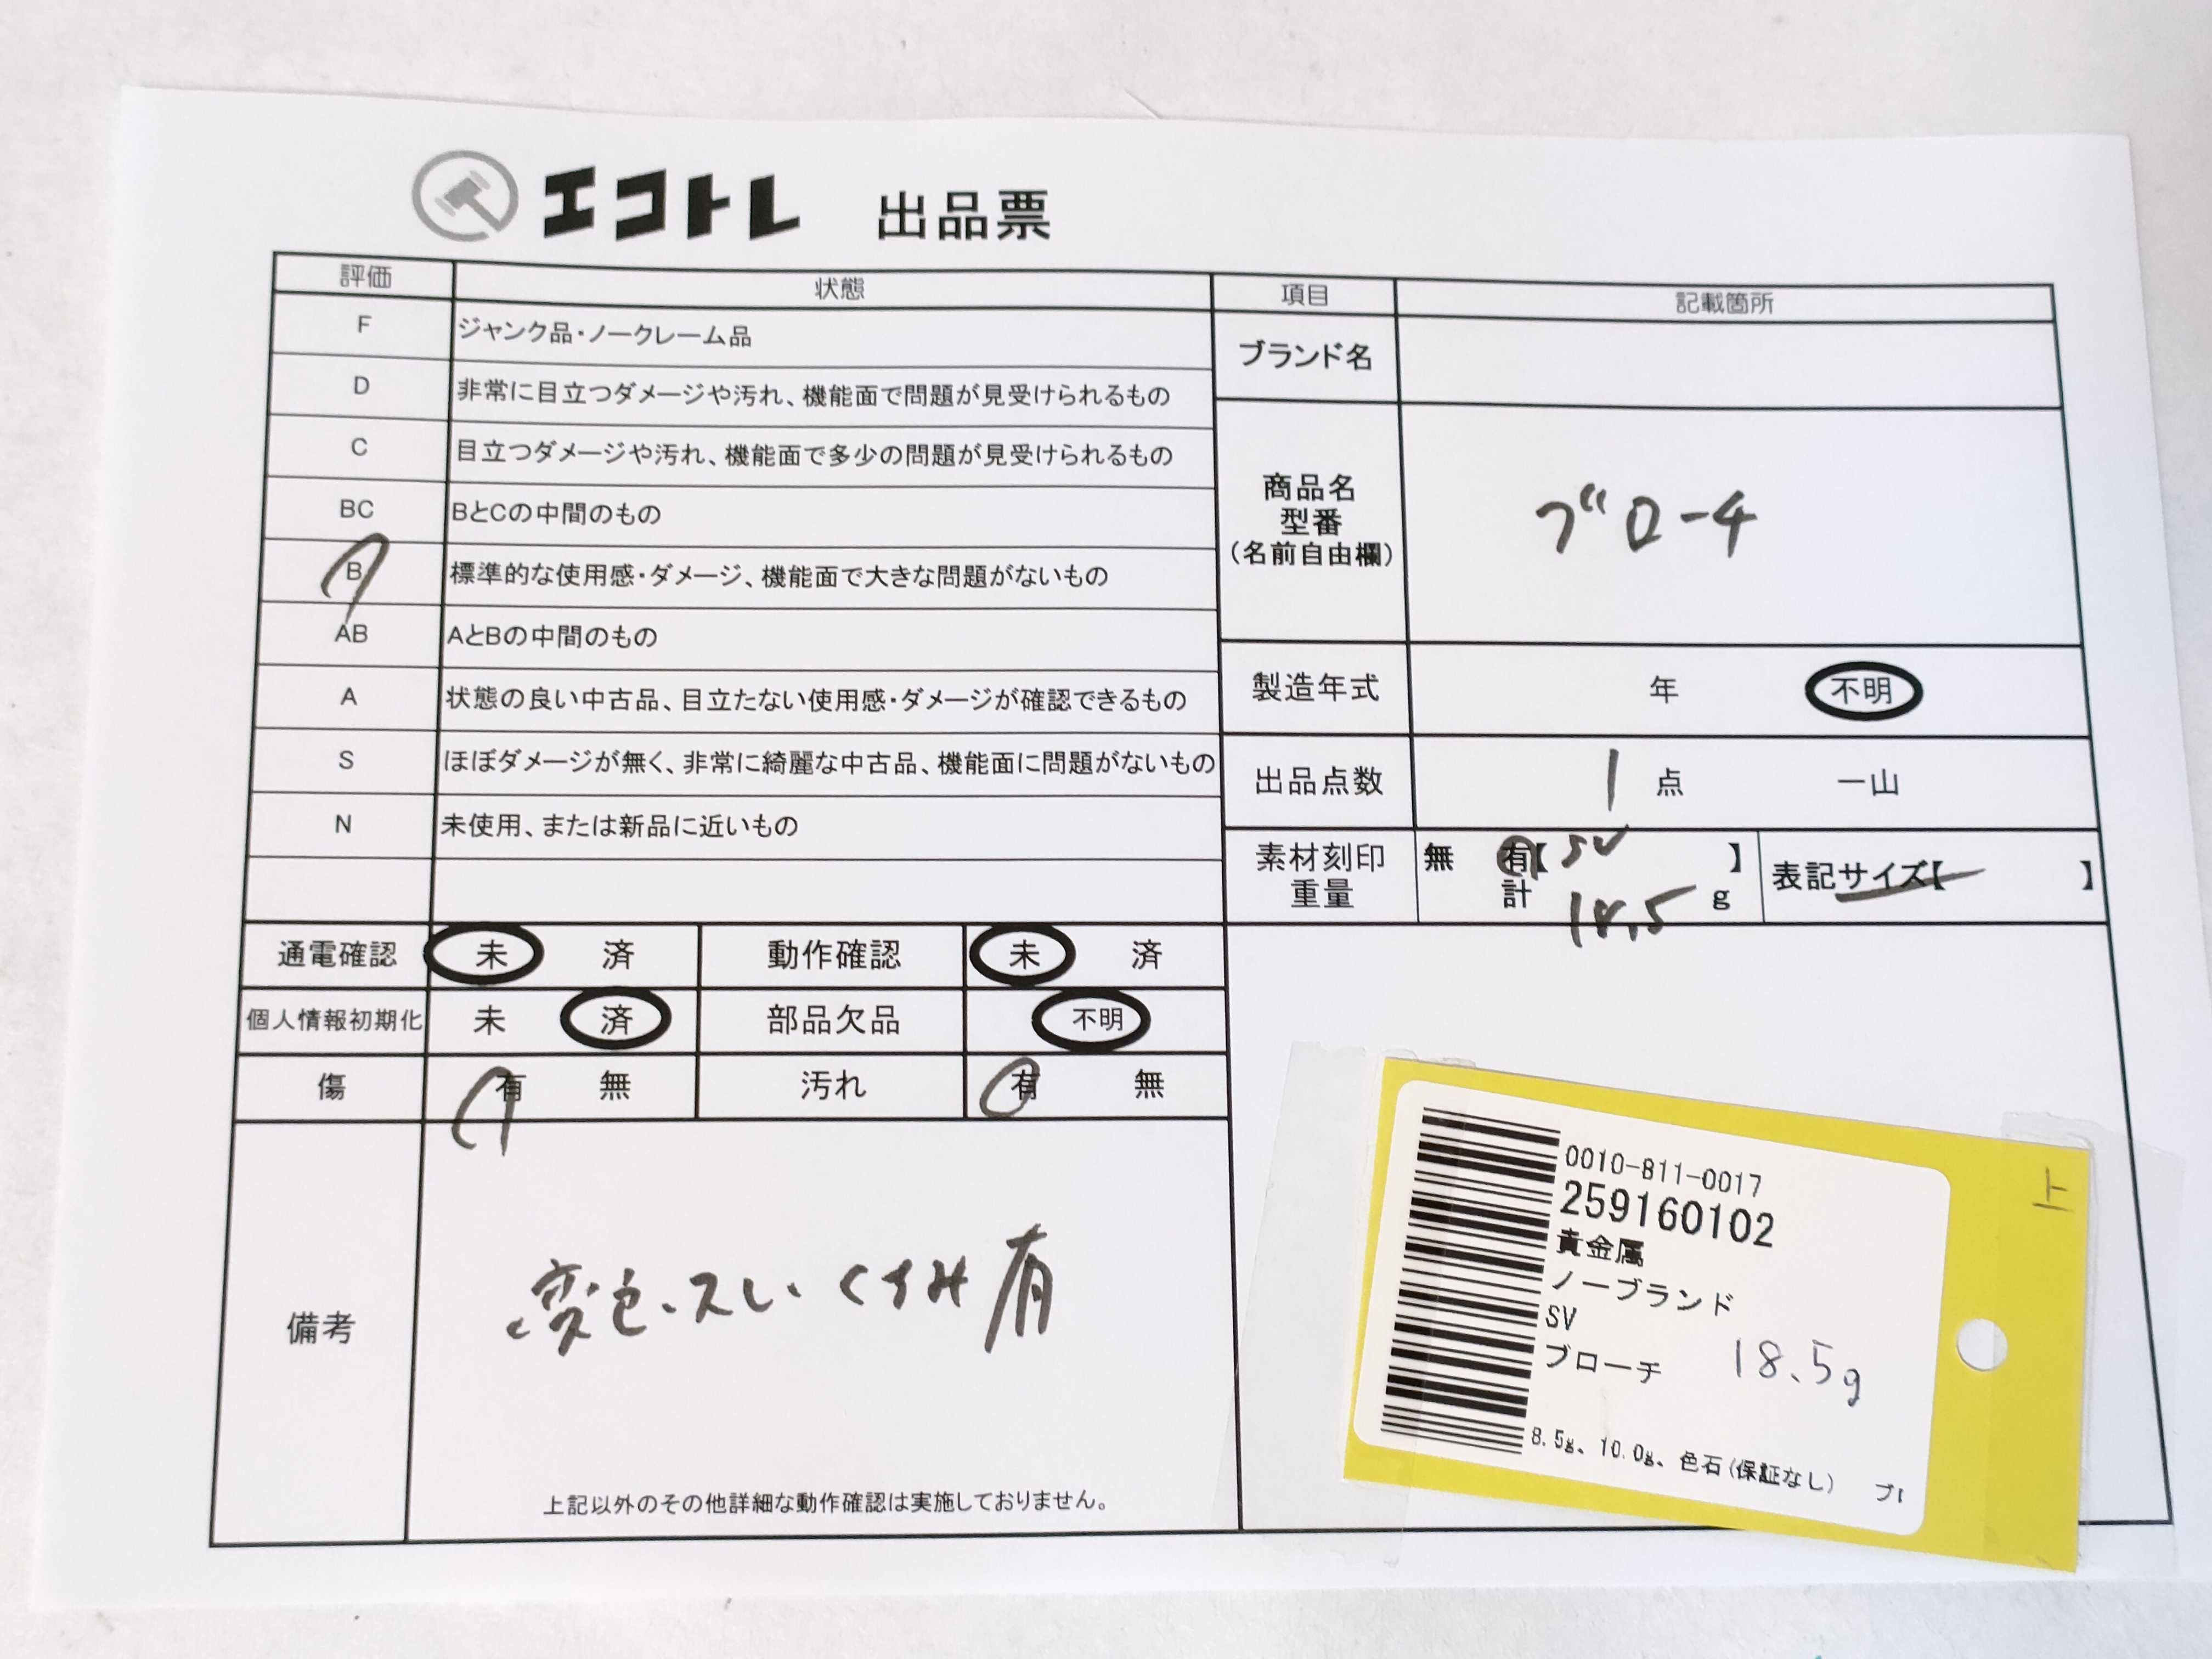 エコトレ 出品票
評価 状態
F ジャンク品・ノークレーム品
D 非常に目立つダメージや汚れ、機能面で問題が見受けられるもの
C 目立つダメージや汚れ、機能面で多少の問題が見受けられるもの
BC BとCの中間のもの
B 標準的な使用感・ダメージ、機能面で大きな問題がないもの
AB AとBの中間のもの
A 状態の良い中古品、目立たない使用感・ダメージが確認できるもの
S ほぼダメージが無く、非常に綺麗な中古品、機能面に問題がないもの
N 未使用、または新品に近いもの
項目 記載箇所
ブランド名
商品名
型番
(名前自由欄)
ブローチ
製造年式 年 不明
出品点数 1 点 一山
素材刻印
重量
無 有【 SV 】
計 18.5 g
表記サイズ【 】
通電確認 未 済 動作確認 未 済
個人情報初期化 未 済 部品欠品 不明
傷 有 無 汚れ 有 無
備考
変色、スレ、くすみ有
上記以外のその他詳細な動作確認は実施しておりません。
0010-811-0017
259160102
貴金属
ノーブランド
SV
ブローチ 18.5g
8.5g、10.0g、色石(保証なし)
上